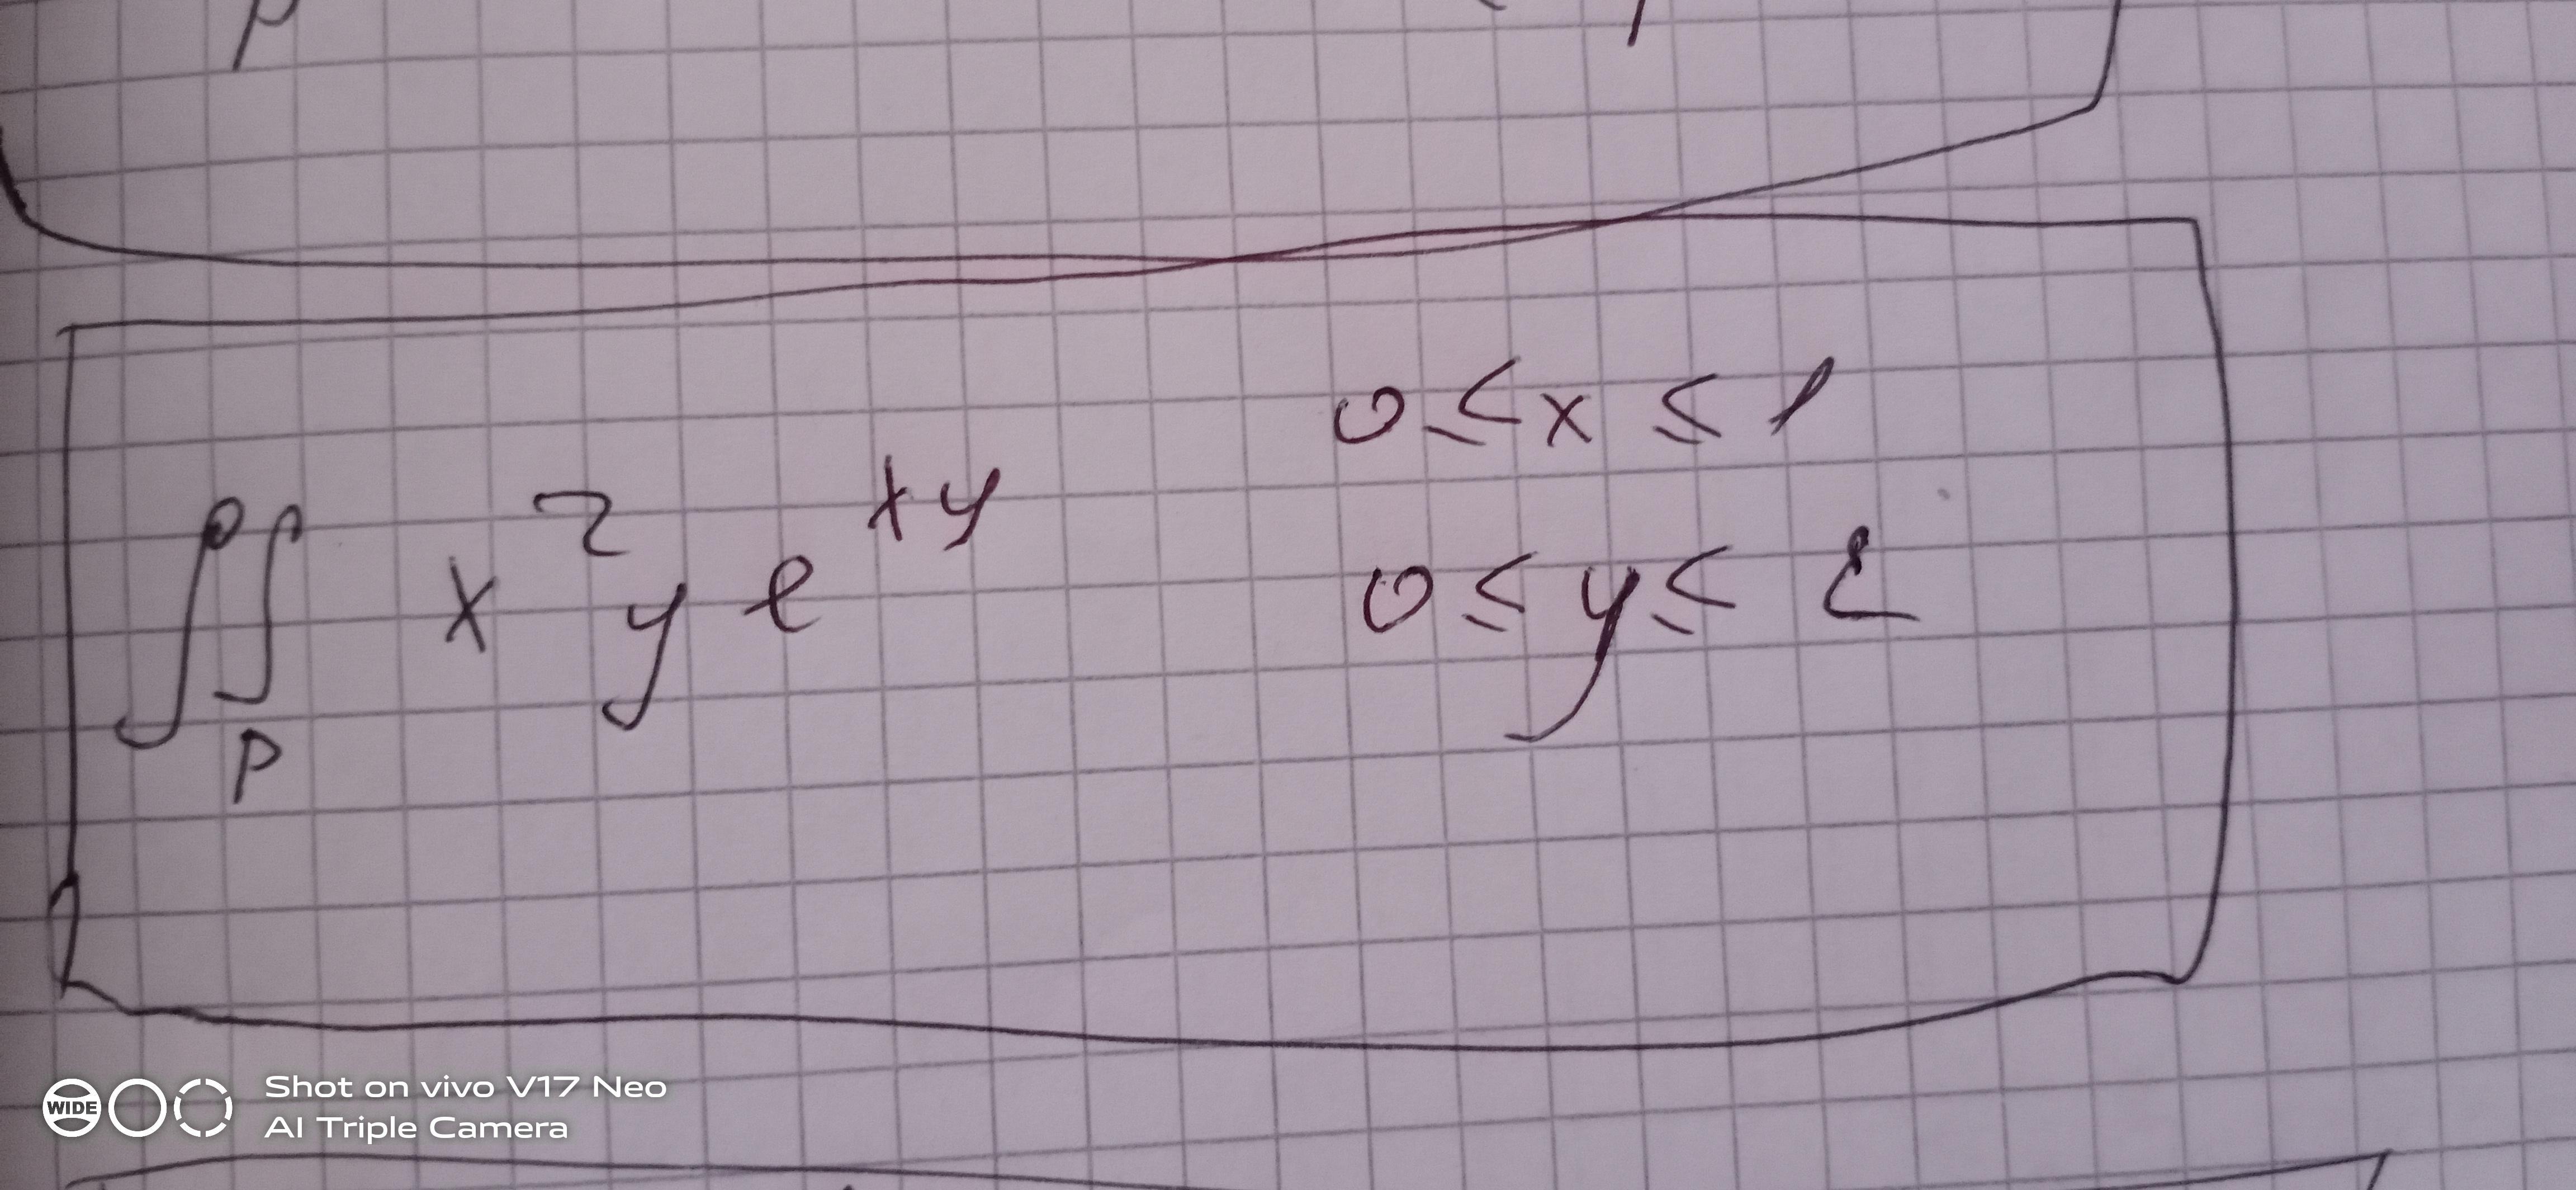 0 ≤ x ≤ 1
∬_P x^2 y e^{xy} 0 ≤ y ≤ 2
WIDE Shot on vivo V17 Neo
AI Triple Camera